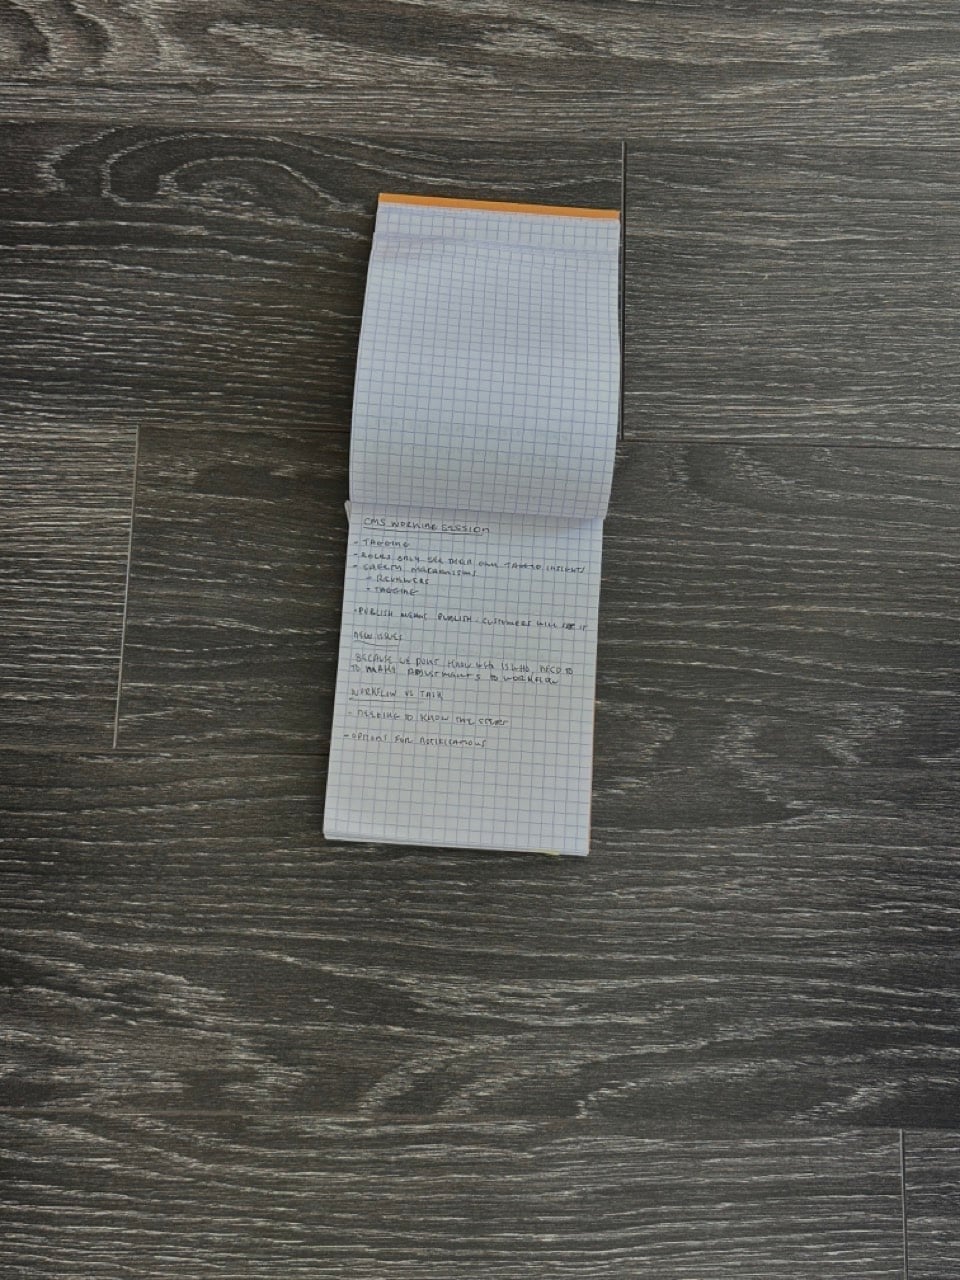 CMS WORKING SESSION
- TAGGING
- ROLES ONLY SEE THEIR OWN TAGGED INSIGHTS
- SAFETY MECHANISMS
- REVIEWERS
- TAGGING
- PUBLISH MEANS PUBLISH - CUSTOMERS WILL SEE IT
NEW ISSUES
BECAUSE WE DON'T KNOW WHO IS WHO, NEED TO
TO MAKE ADJUSTMENTS TO WORKFLOW
WORKFLOW VS TASK
- NEEDING TO KNOW THE
- OPTIONS FOR NOTIFICATIONS